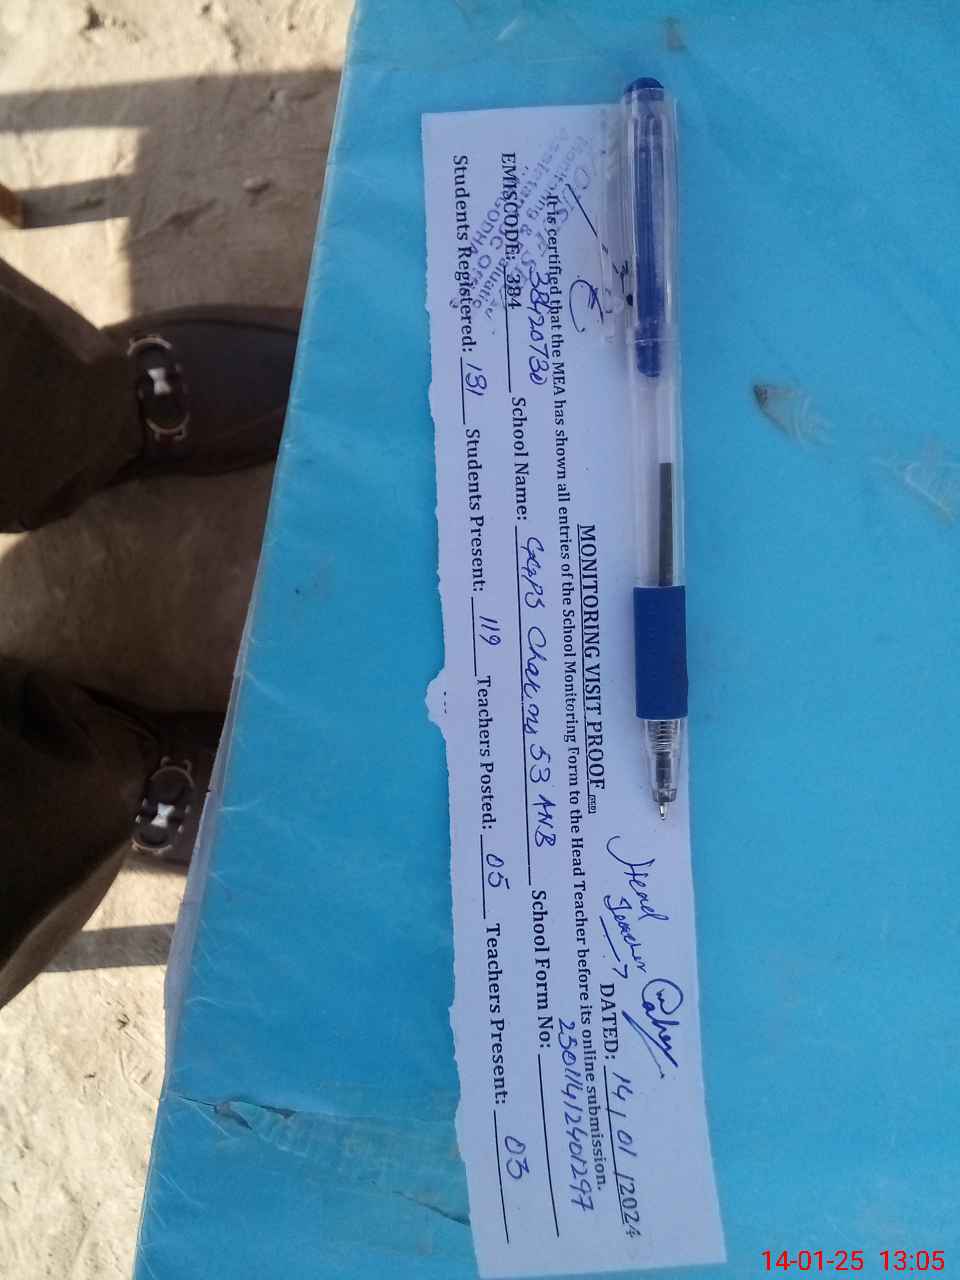 MONITORING VISIT PROOF
Head
Teacher
DATED: 14/01/2024
It is certified that the MEA has shown all entries of the School Monitoring Form to the Head Teacher before its online submission.
EMISCODE: 384 38420730 School Name: GGPS Chak no 53 ANB School Form No: 25011412401297
Students Registered: 131 Students Present: 119 Teachers Posted: 05 Teachers Present: 03
Monitoring & Evaluation
Assistant
14-01-25 13:05